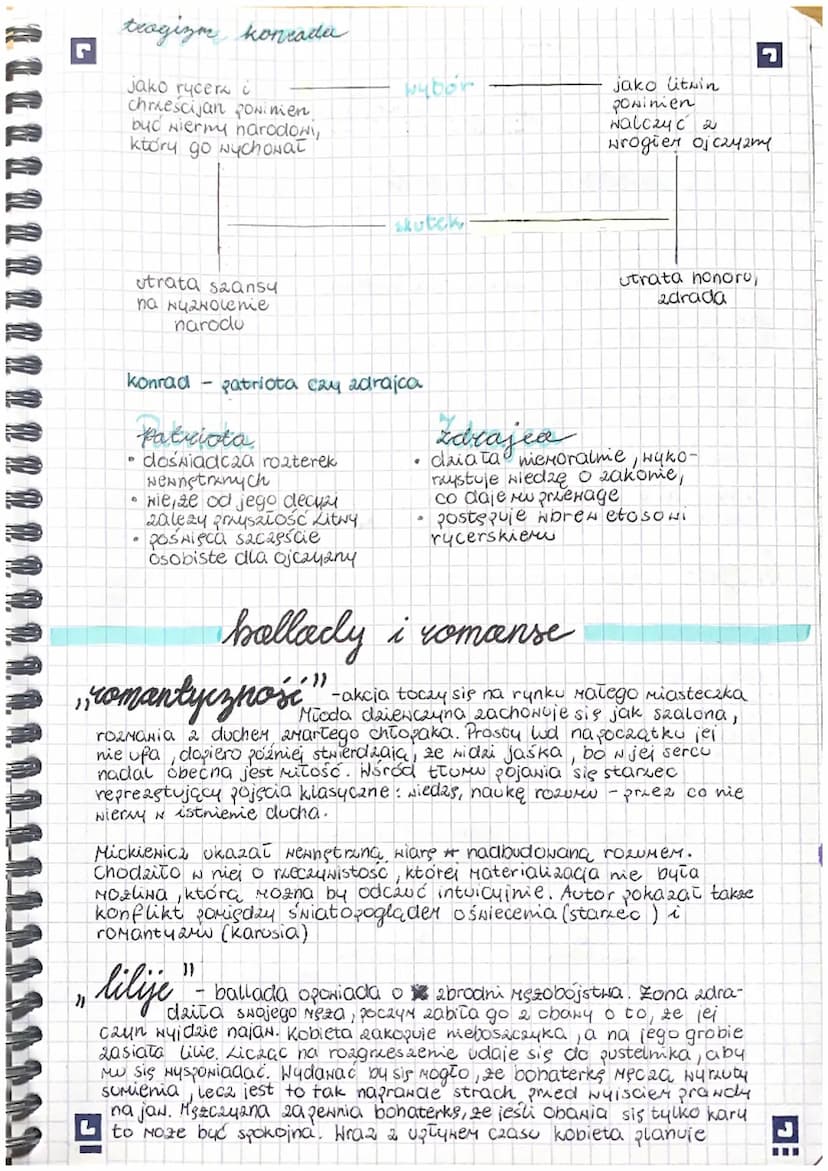 tragizm konrada
jako rycerz i
chrześcijan powinien
być wierny narodowi,
który go wychował
wybór
jako litwin
powinien
walczyć z
wrogiem ojczyzny
skutek
utrata szansy
na wyzwolenie
narodu
utrata honoru,
zdrada
konrad - patriota czy zdrajca
Patriota
• doświadcza rozterek
wewnętrznych
• wie, że od jego decyzi
zależy przyszłość Litwy
• poświęca szczęście
osobiste dla ojczyzny
Zdrajca
• działa niemoralnie, wyko-
rzystuje wiedzę o zakonie,
co daje mu przewage
• postępuje wbrew etosowi
rycerskiemu
ballady i romanse
„romantyczność" - akcja toczy się na rynku małego miasteczka
Młoda dziewczyna zachowuje się jak szalona,
rozmawia z duchem zmarłego chłopaka. Prosty lud na początku jej
nie ufa, dopiero później stwierdzają, że widzi jaśka, bo w jej sercu
nadal obecna jest miłość. Wśród tłumu pojawia się starzec
reprezętujący pojęcia klasyczne: wiedzę, naukę rozumu - przez co nie
wierzy w istnienie ducha.
Mickiewicz ukazał wewnętrzną wiarę nadbudowaną rozumem.
Chodziło w niej o rzeczywistość, której materializacja nie była
możliwa, którą można by odczuć intuicyjnie. Autor pokazał także
konflikt pomiędzy światopoglądem oświecenia (starzec) i
romantyzmu (karusia)
„lilije" - ballada opowiada o zbrodni mężobójstwa. Żona zdra-
dziła swojego męża, poczym zabiła go z obawy o to, że jej
czyn wyjdzie najaw. Kobieta zakopuje nieboszczyka, a na jego grobie
zasiała lilie. Licząc na rozgrzeszenie udaje się do pustelnika, aby
mu się wyspowiadać. Wydawać by się mogło, że bohaterkę męczą wyrzuty
sumienia, lecz jest to tak naprawde strach przed wyjsciem prawdy
na jaw. Mężczyzna zapewnia bohaterkę, że jeśli obawia się tylko kary
to może być spokojna. Wraz z upływem czasu kobieta planuje